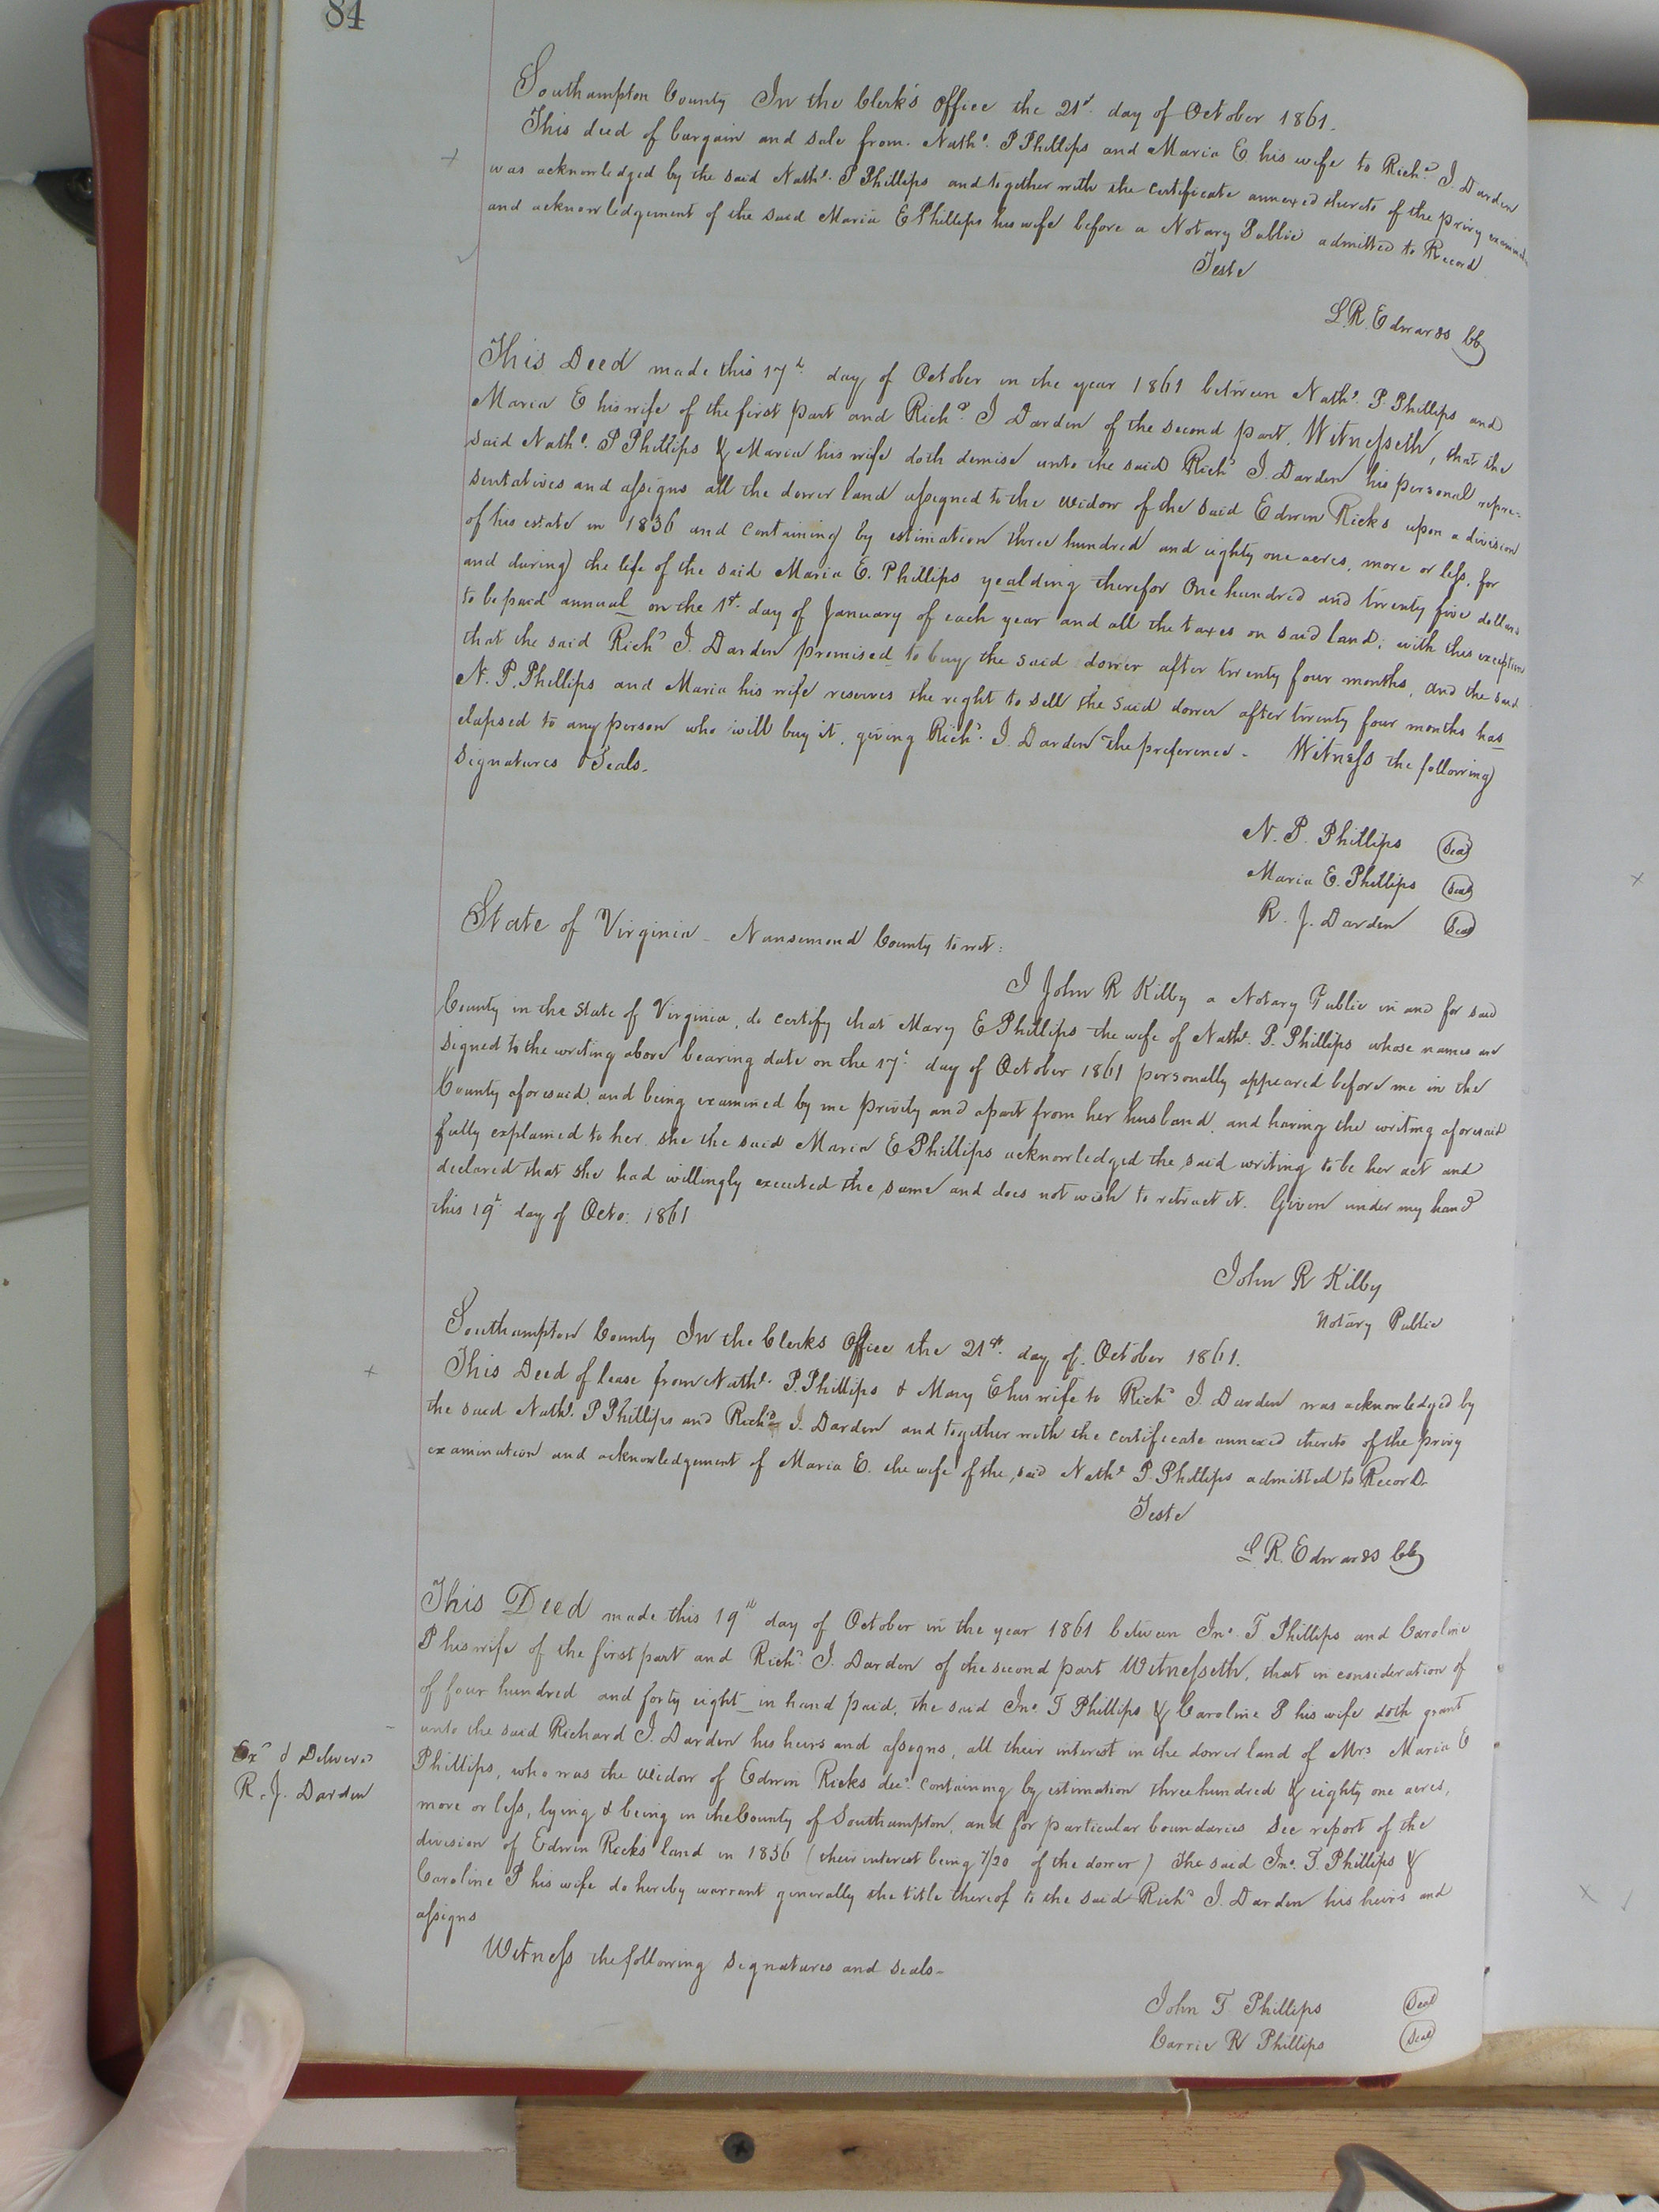 84
Southampton County In the Clerk's Office the 21st day of October 1861.
This deed of bargain and sale from Nathl. P Phillips and Maria E his wife to Richd. J. Darden
was acknowledged by the said Nathl. P Phillips and together with the certificate annexed thereto of the privy
and acknowledgement of the said Maria E Phillips his wife before a Notary Public admitted to Record
Teste
L. R. Edwards CC
This Deed made this 17th day of October in the year 1861 between Nathl. P. Phillips and
Maria E his wife of the first part and Richd. J Darden of the second part, Witnesseth, that the
said Nathl. P Phillips & Maria his wife doth demise unto the said Richd J. Darden his personal repre-
sentatives and assigns all the dower land assigned to the widow of the said Edwin Ricks upon a division
of his estate in 1856 and containing by estimation three hundred and eighty one acres, more or less, for
and during the life of the said Maria E. Phillips yealding therefor One hundred and twenty five dollars
to be paid annual on the 1st day of January of each year and all the taxes on said land; with this exception
that the said Richd J. Darden promised to buy the said dower after twenty four months, and the said
N. P. Phillips and Maria his wife reserves the right to sell the said dower after twenty four months has
elapsed to any person who will buy it, giving Richd. J. Darden the preference - Witness the following
Signatures & Seals.
N. P. Phillips Seal
Maria E. Phillips Seal
R. J. Darden Seal
State of Virginia - Nansemond County to wit:
I John R Kilby a Notary Public in and for said
County in the State of Virginia, do certify that Mary E Phillips the wife of Nathl. P. Phillips whose names are
signed to the writing above bearing date on the 17th day of October 1861 personally appeared before me in the
County aforesaid, and being examined by me privily and apart from her husband, and having the writing aforesaid
fully explained to her, she the said Maria E Phillips acknowledged the said writing to be her act and
declared that she had willingly executed the same and does not wish to retract it. Given under my hand
this 19th day of Octo: 1861
John R Kilby
Notary Public
Southampton County In the Clerks Office the 21st day of October 1861.
This Deed of lease from Nathl. P. Phillips & Mary E his wife to Richd J. Darden was acknowledged by
the said Nathl. P Phillips and Richd J. Darden and together with the certificate annexed thereto of the privy
examination and acknowledgement of Maria E. the wife of the said Nathl P. Phillips admitted to Record.
Teste
L R. Edwards CC
This Deed made this 19th day of October in the year 1861 between Jno. T Phillips and Caroline
P his wife of the first part and Richd J. Darden of the second part Witnesseth, that in consideration of
of four hundred and forty eight in hand paid, the said Jno. T Phillips & Caroline P his wife doth grant
unto the said Richard J. Darden his heirs and assigns, all their interest in the dower land of Mrs Maria E
Phillips, who was the widow of Edwin Ricks decd. containing by estimation three hundred & eighty one acres,
more or less, lying & being in the County of Southampton, and for particular boundaries See report of the
division of Edwin Ricks land in 1856 (their interest being 7/20 of the dower) The said Jno. T. Phillips &
Caroline P his wife do hereby warrant generally the title thereof to the said Richd J. Darden his heirs and
assigns
Witness the following signatures and seals-
John T Phillips Seal
Carrie R Phillips Seal
Exd & Delivered
R. J. Darden